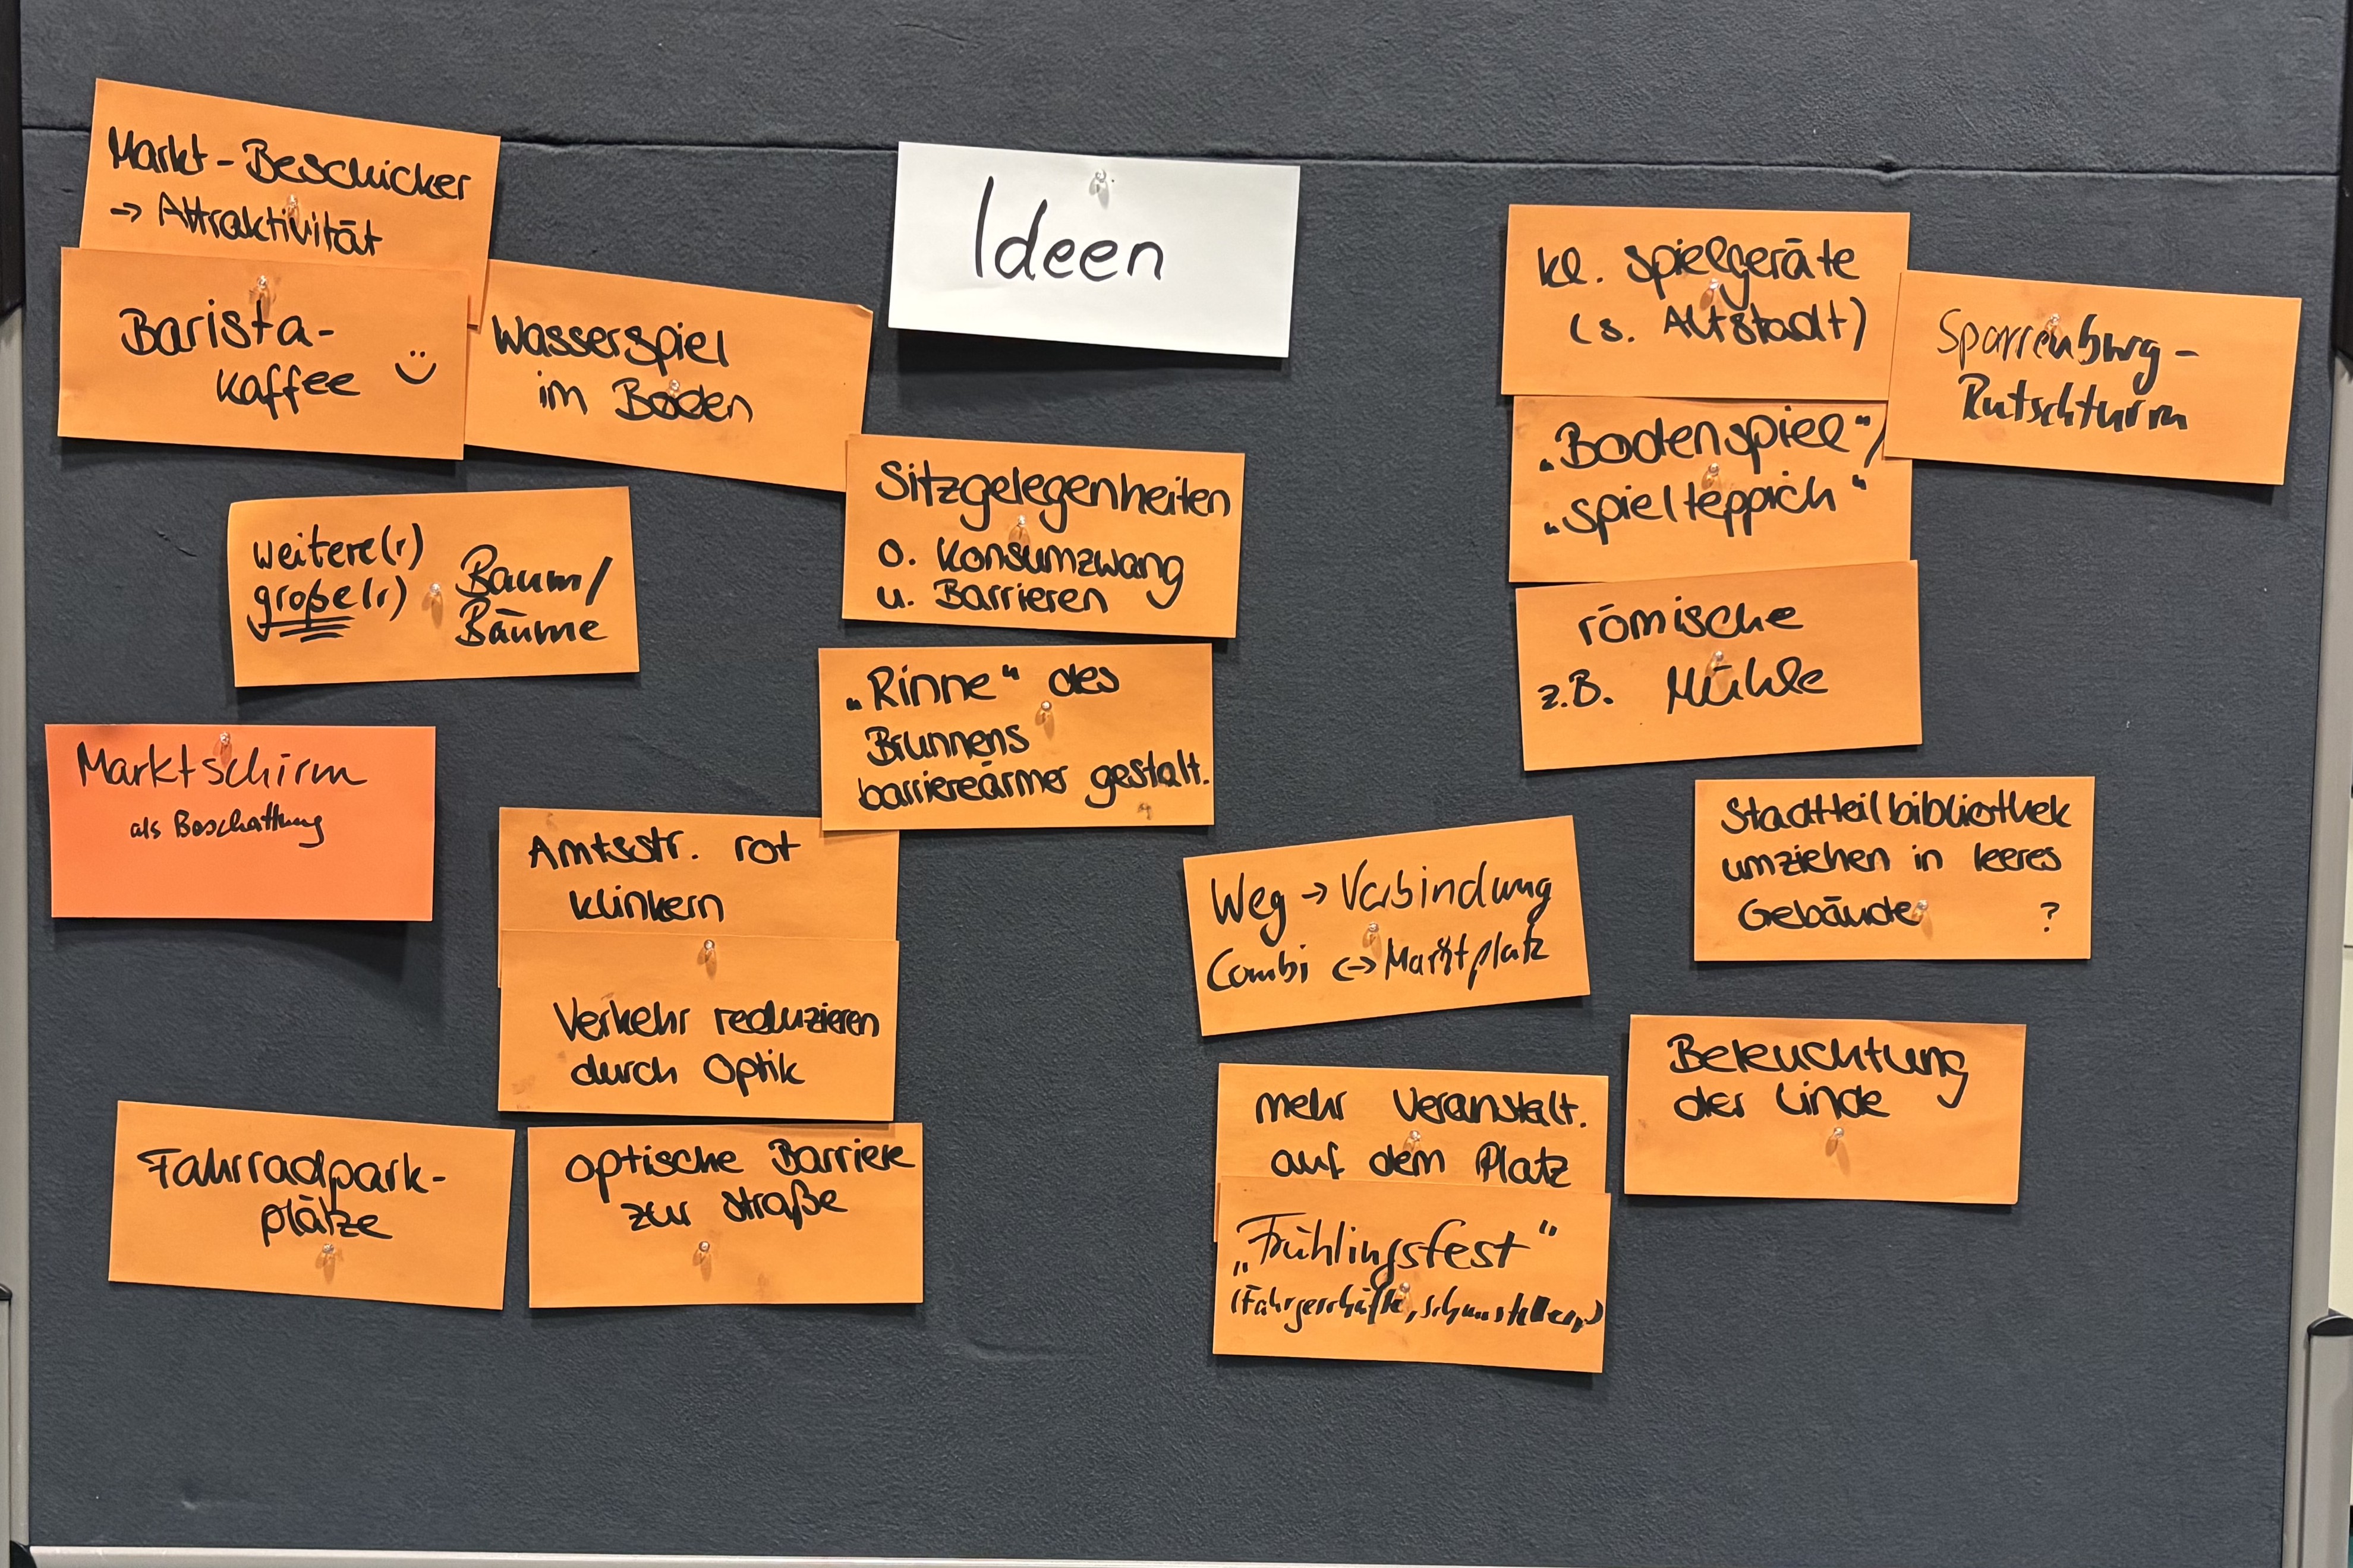 Ideen
Markt-Beschicker
→ Attraktivität
Barista-
kaffee
Wasserspiel
im Boden
Sitzgelegenheiten
o. Konsumzwang
u. Barrieren
weitere(r)
große(r)
Baum/
Bäume
„Rinne" des
Brunnens
barriereärmer gestalt.
Marktschirm
als Beschattung
Amtsstr. rot
klinkern
Verkehr reduzieren
durch Optik
Fahrradpark-
plätze
optische Barriere
zur Straße
kl. Spielgeräte
(s. Altstadt)
Sparrenburg-
Rutschturm
„Bodenspiel"/
„Spielteppich"
römische
z.B. Mühle
Stadtteilbibliothek
umziehen in leeres
Gebäude ?
Weg → Verbindung
Combi ↔ Marktplatz
Beleuchtung
der Linde
mehr Veranstalt.
auf dem Platz
„Frühlingsfest"
(Fahrgeschäfte, Schausteller,)